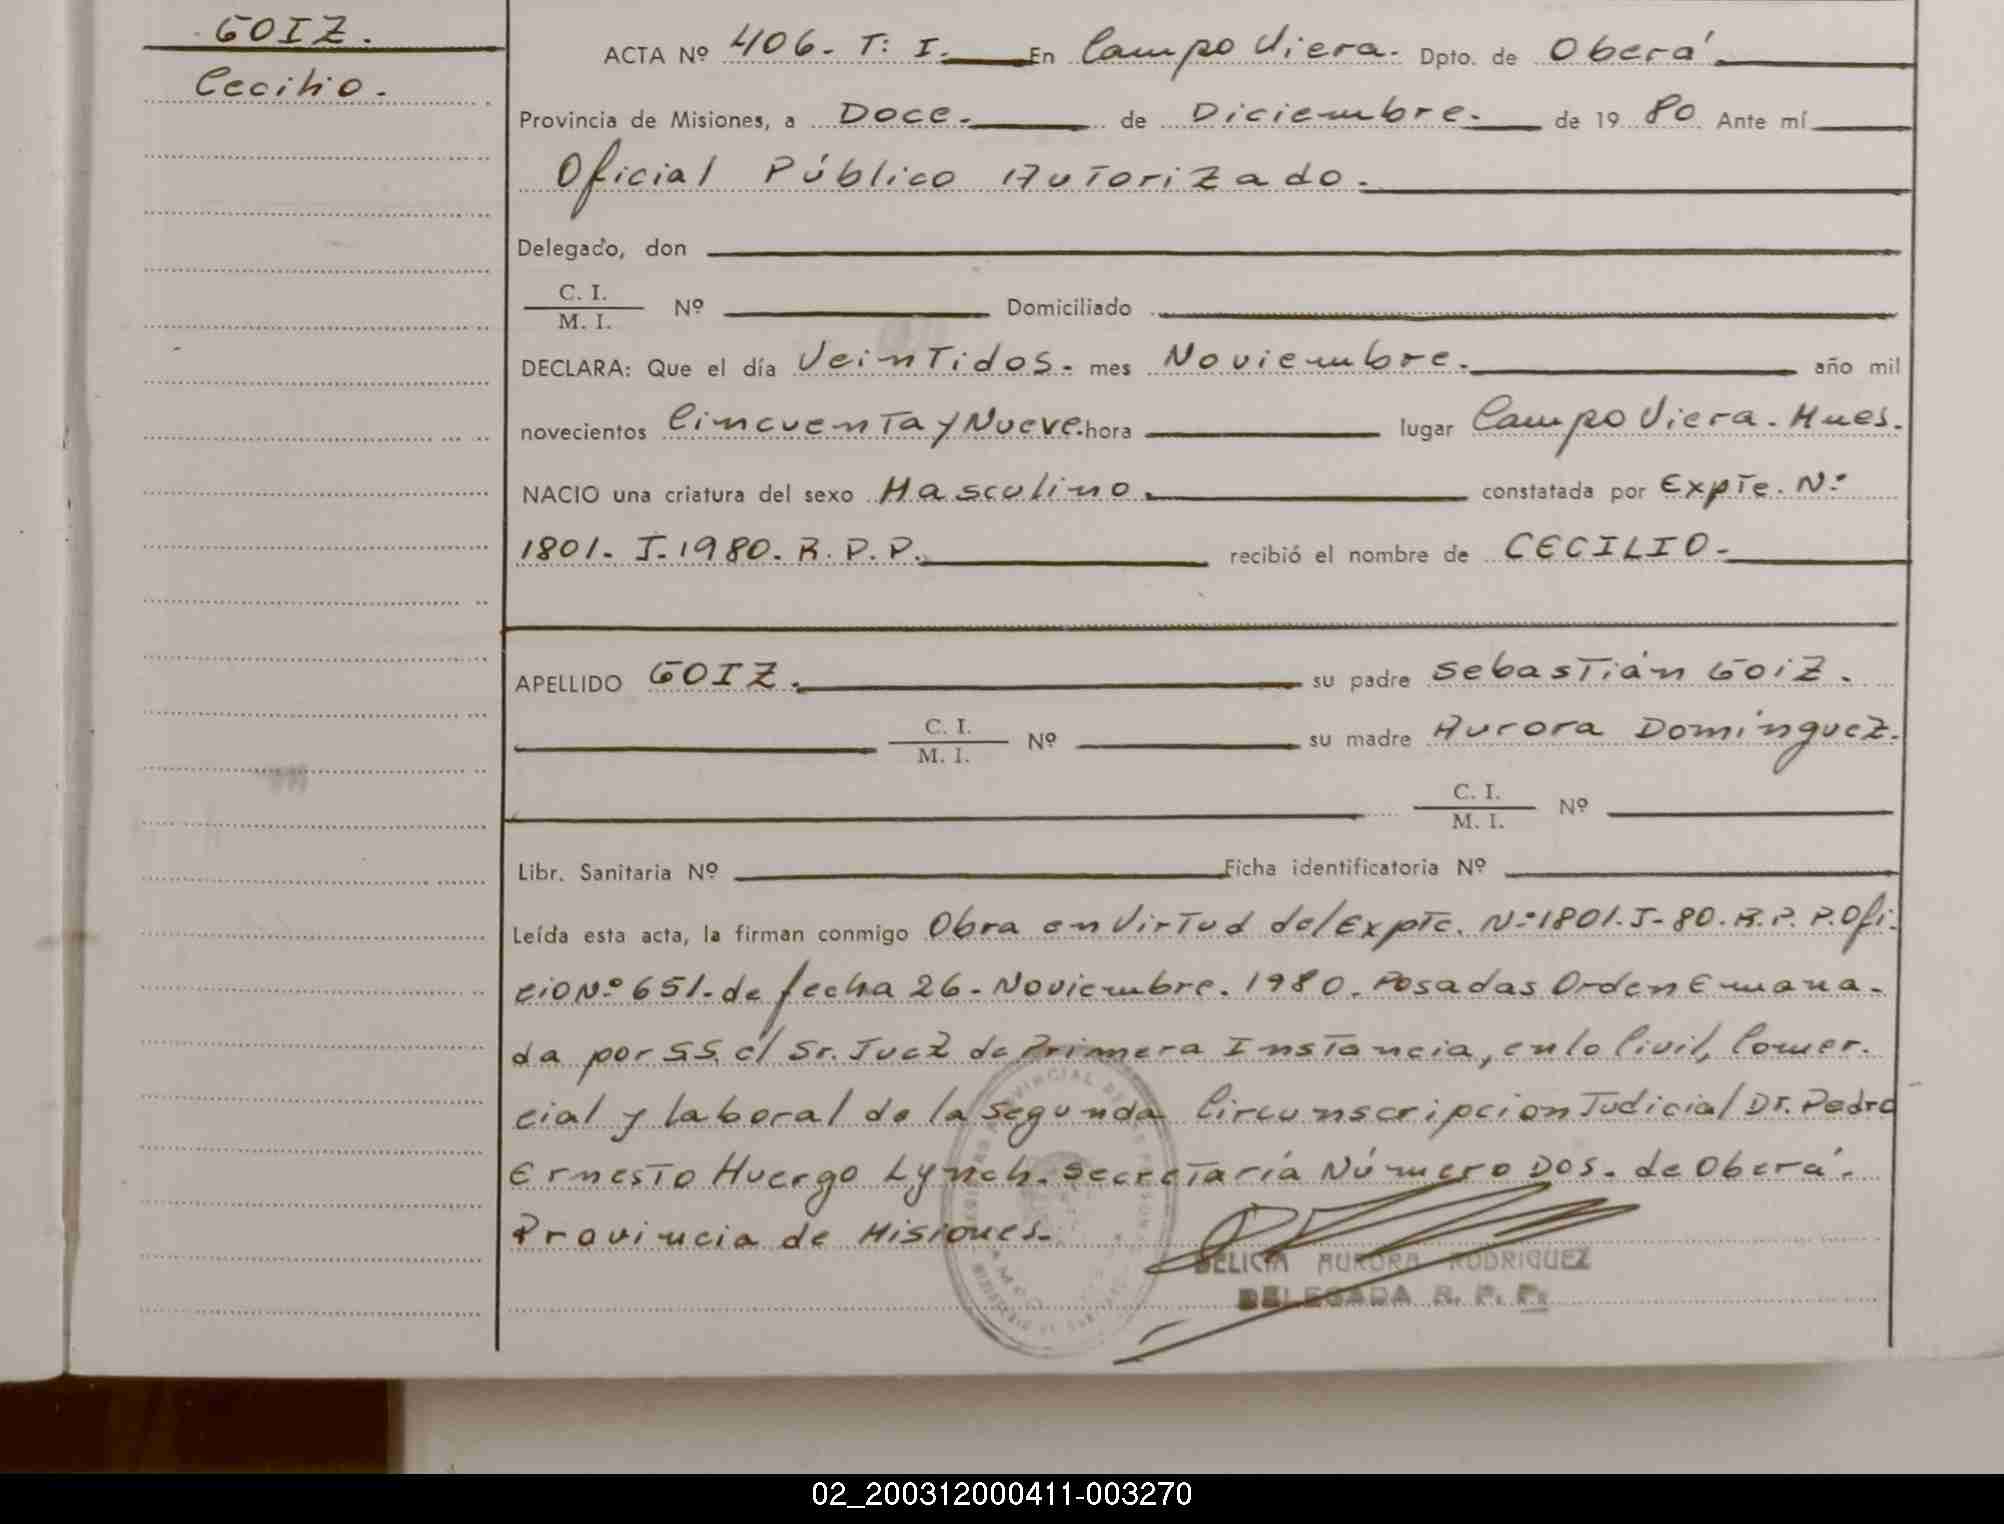 GOIZ.
Cecilio.
ACTA Nº 406. T: I. En Campo Viera. Dpto. de Oberá
Provincia de Misiones, a Doce. de Diciembre. de 19 80 Ante mí
Oficial Público Autorizado.
Delegado, don
C. I.
M. I. Nº Domiciliado
DECLARA: Que el día VeinTidos. mes Noviembre. año mil
novecientos CincuenTa y Nueve. hora lugar Campo Viera. Mnes.
NACIO una criatura del sexo Masculino. constatada por ExpTe. Nº
1801. J. 1980. R. P. P. recibió el nombre de CECILIO.
APELLIDO GOIZ. su padre SebasTián Goiz.
C. I.
M. I. Nº su madre Aurora Domínguez.
C. I.
M. I. Nº
Libr. Sanitaria Nº Ficha identificatoria Nº
Leída esta acta, la firman conmigo Obra en VirTud del ExpTe. Nº 1801. J-80. R. P. P. Ofi.
cio Nº 651. de fecha 26. Noviembre. 1980. Posadas Orden Emana.
da por S.S. el Sr. Juez de Primera InsTancia, en lo Civil, Comer.
cial y laboral de la Segunda Circunscripcion Judicial Dr. Pedro
ErnesTo Huergo Lynch. SecreTaría Número Dos. de Oberá.
Provincia de Misiones.
DELICIA AURORA RODRIGUEZ
DELEGADA R. P. P.
02_200312000411-003270